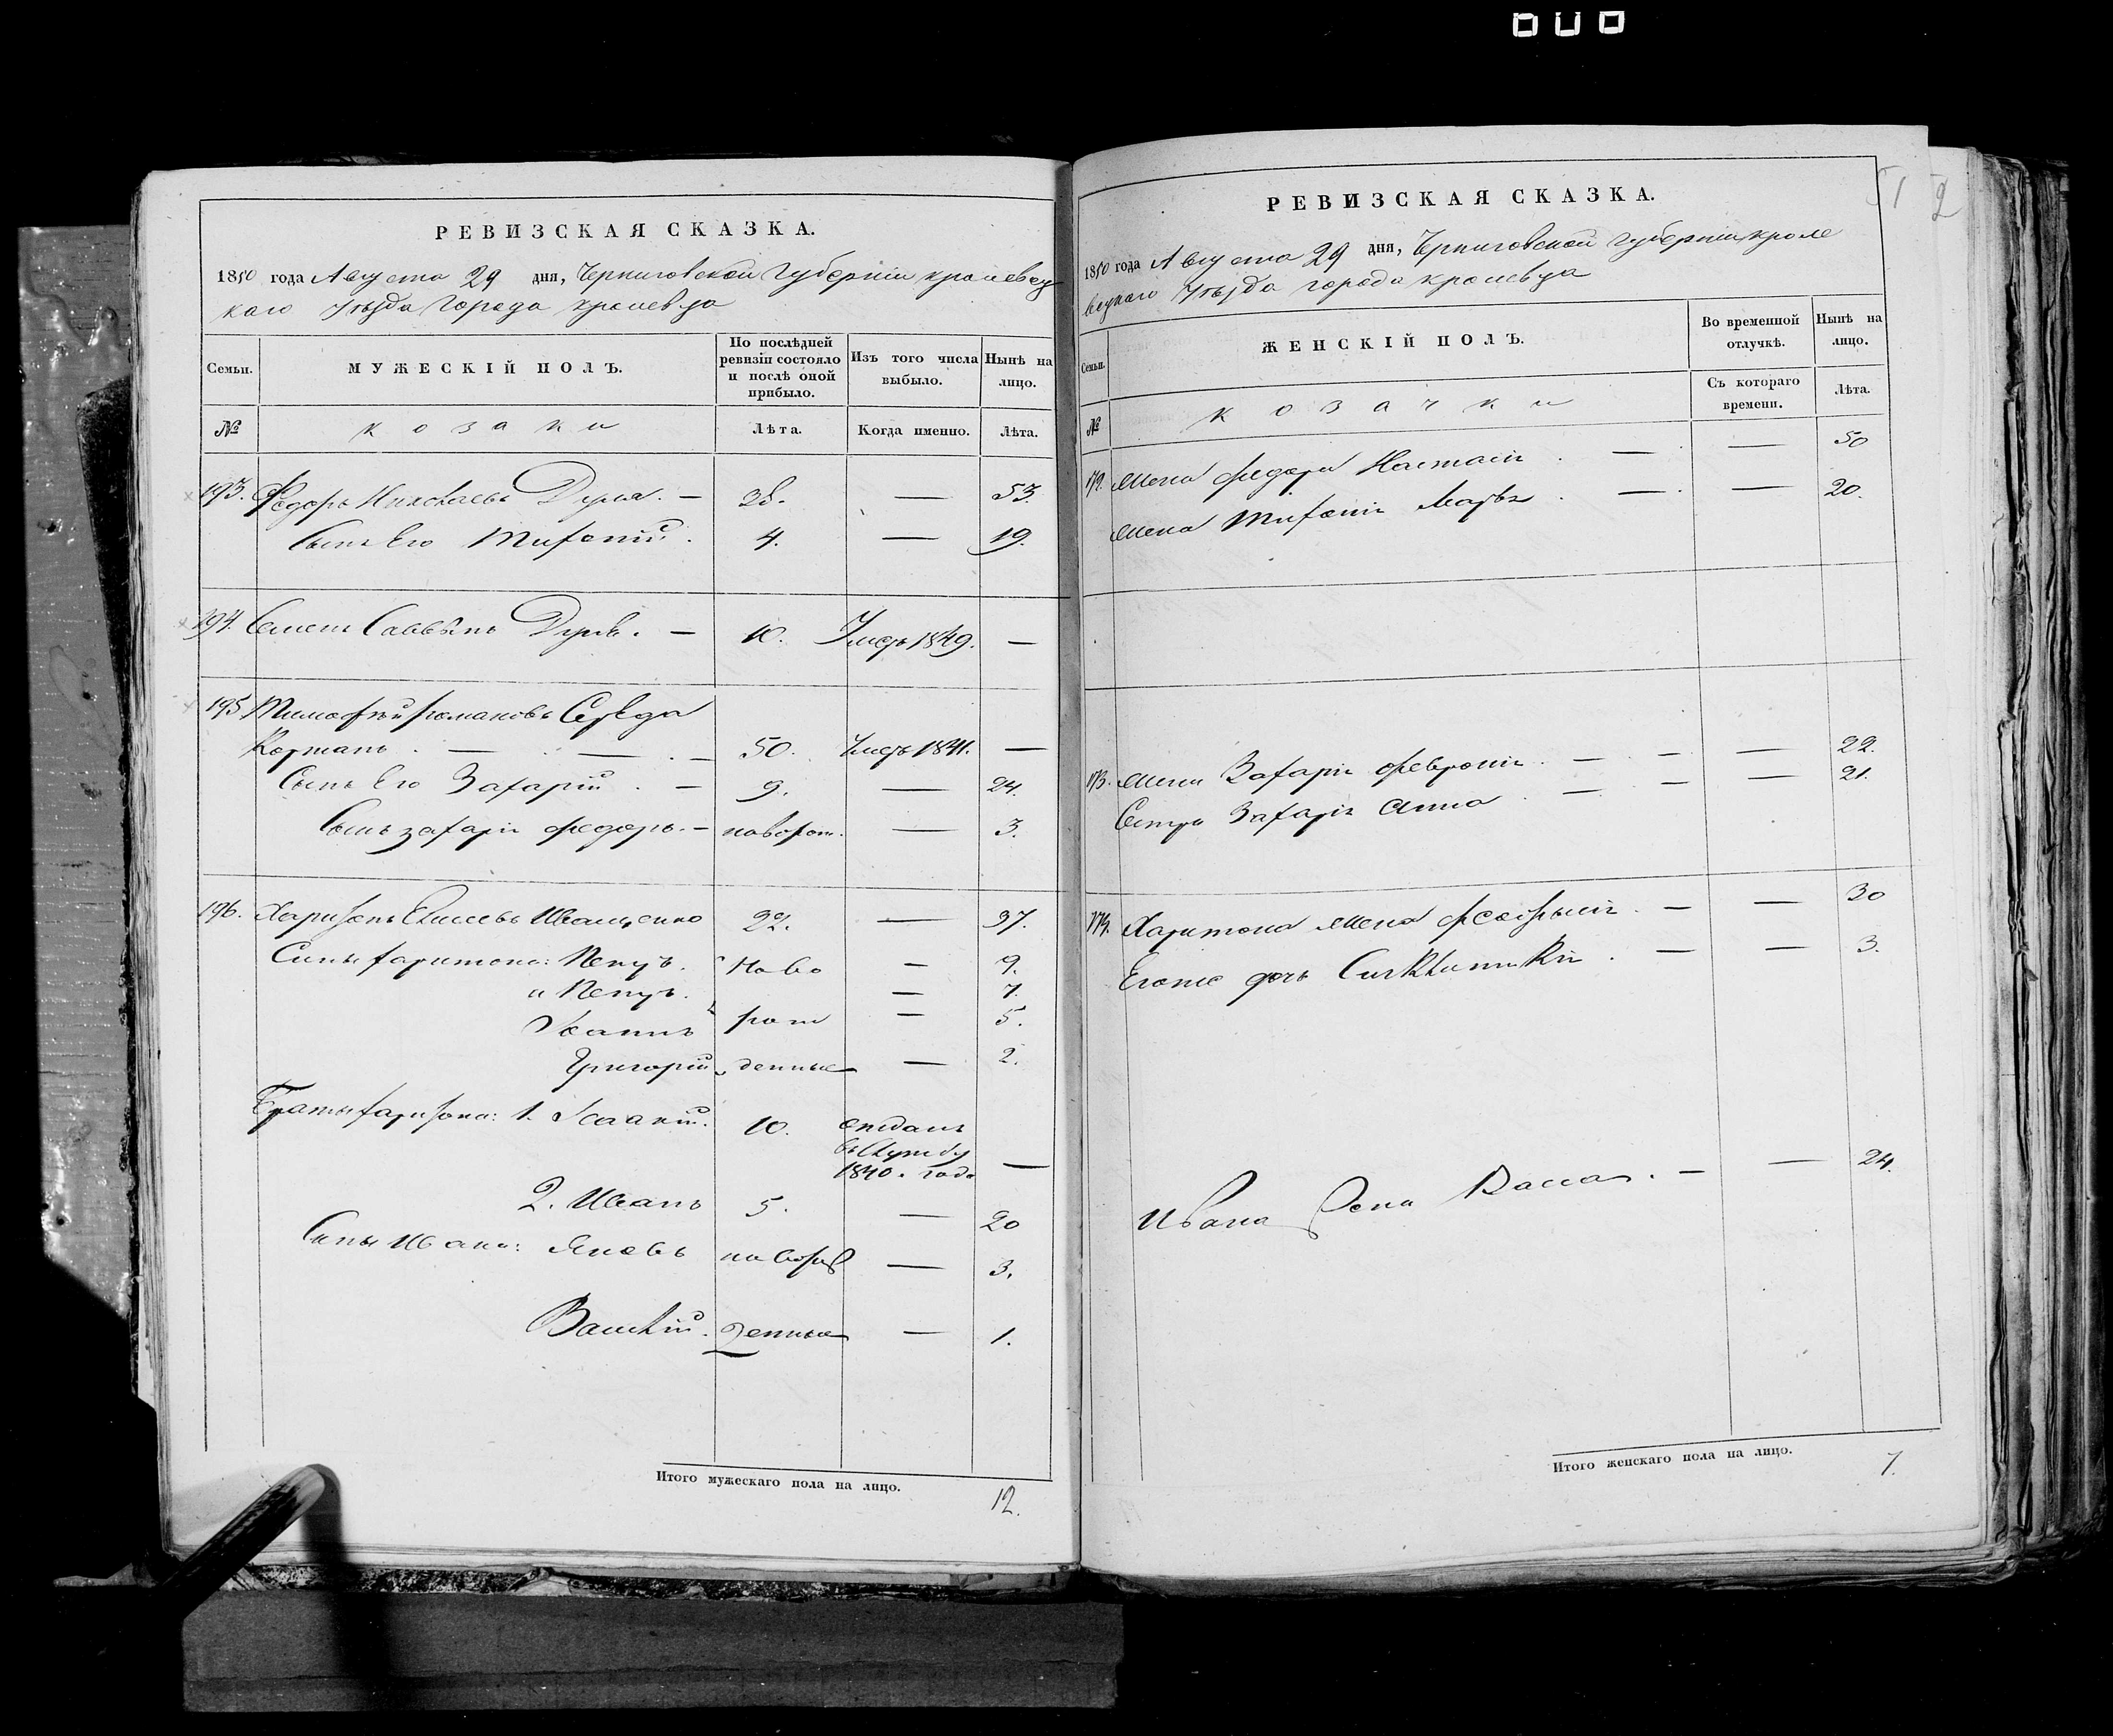 РЕВИЗСКАЯ СКАЗКА.
1850 года Августа 29 дня, Черниговской Губернии кролевец
каго Уѣзда города кролевца
Семьи.
МУЖЕСКІЙ ПОЛЪ.
По послѣдней ревизіи состояло и послѣ оной прибыло.
Изъ того числа выбыло.
Нынѣ на лицо.
№
козаки
Лѣта.
Когда именно.
Лѣта.
193. Федоръ Николаевъ — 38. — 53.
Сынъ Его Тифоній. 4. — 19.
194. Семенъ Саввинъ — 10. Умеръ 1849. —
195 Тимофѣй романовъ Середа
Кортанъ. — — 50. Умеръ 1841. —
Сынъ Его Захарій. — 9. — 24.
Сынъ захарія федоръ. — новорож. — 3.
196. Харитонъ Иващенко 22. — 37.
Сины харитона: Петръ. Ново — 9.
и Петръ. — 7.
рож — 5.
Григорій денные — 2.
Браты харитона: 1. Исаакій. 10. отданъ
въ службу
1840. года —
2. Иванъ 5. — 20
Сины Ивана: Яковъ новорож — 3.
Василій. денные — 1.
Итого мужескаго пола на лицо.
12.
РЕВИЗСКАЯ СКАЗКА.
1850 года Августа 29 дня, Черниговской Губерніи кроле
вецкаго Уѣзда города кролевца
Семьи.
ЖЕНСКІЙ ПОЛЪ.
Во временной отлучкѣ.
Нынѣ на лицо.
№
козачки
Съ котораго времени.
Лѣта.
Жена федора Настасія. — — 50
Жена Тифонія Марфа. — — 20.
173. Жена Захарія февронія. — — — 22.
Сестра Захарія Анна. — — — 21.
174. Харитона жена — — 30
Егоже дочь — — 3.
Ивана жена Васса. — — 24.
Итого женскаго пола на лицо.
7.